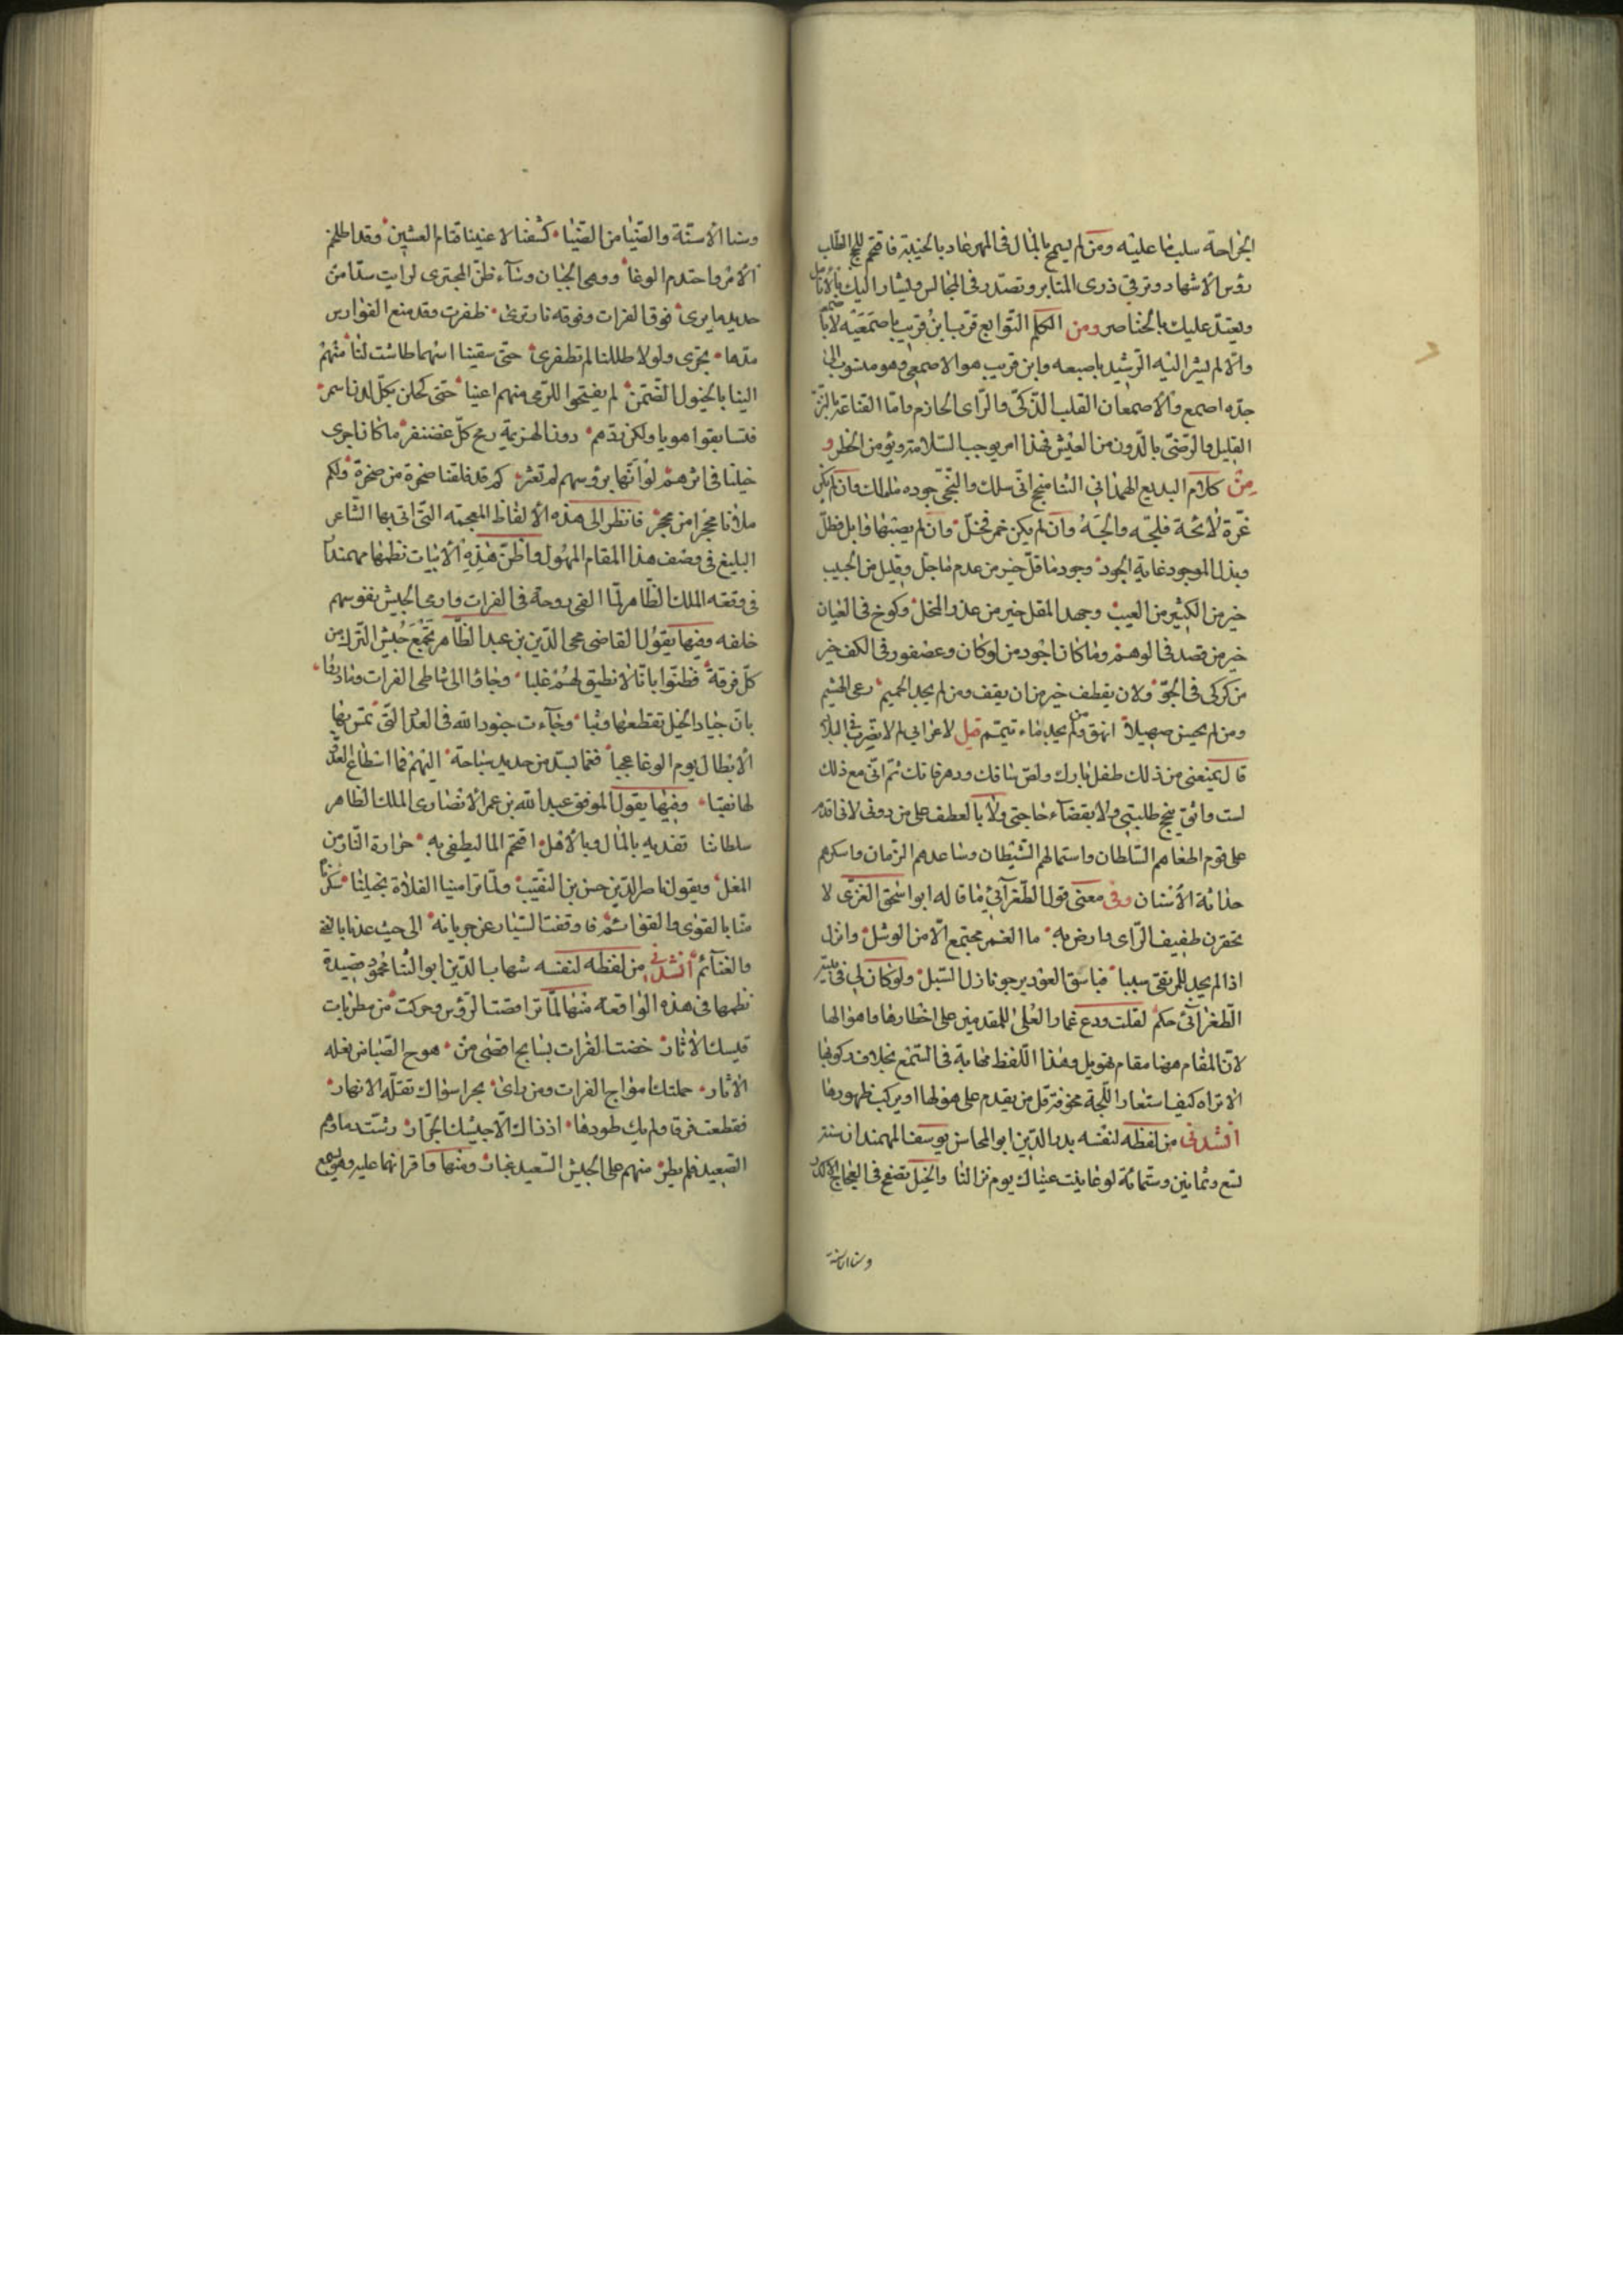 الجراحة سلب ما عليه ومن لم يسمح بالمال في المهر عاد بالخيبة فاقتحم لجج الطلب
رؤس الأشهاد وترقى ذرى المنابر وتصدر في المجالس وليشار اليك بالأنامل
ويعقد عليك بالخناصر ومن الكلم النوابغ قرب ابن قريب باصمعيه لا باصمعه
والا لم يشر اليه الرشيد باصبعه وابن قريب هو الاصمعي وهو منسوب الى
جده اصمع والأصمعان القلب الذكى والراى الحازم واما القناعة بالنزر
القليل والرضى بالدون من العيش فهذا امر يوجب السلامة ويؤمن الخطر و
من كلام البديع الهمذاني الشامنج انى سلك والنجى جوده ما ملك وان لم يكن
غرة لائحة فلمحة والجه وان لم يكن خمر فخل وان لم يصبها وابل فطل
وبذل الموجود غاية الجود وجود ما قل خير من عدم ما جل وقليل من الجيب
خير من الكثير من الغيب وجهد المقل خير من عذر المخل وكوخ في العيان
خير من قصر في الوهم وما كان اجود من لو كان وعصفور في الكف خير
من كركى في الجو ولان يقطف خير من ان يقف ومن لم يجد الحميم رعى الهشيم
ومن لم يحسن صهيلا انهق ومن لم يجد ماء تيمم قيل لاعرابي لم لا تضرب في البلاد
قال يمنعنى من ذلك طفل بارك ولص سافك ودهر فاتك ثم انى مع ذلك
لست واثق بنجح طلبتى ولا بقضاء حاجتى ولا بالعطف على من دونى لانى اقدم
على قوم اطغاهم السلطان واستمالهم الشيطان وساعدهم الزمان واسكرهم
حداثة الأسنان وفي معنى قول الطغرآئي ما قاله ابو اسحق الغزى لا
تحقرن طفيف الراى وارض به ما الغمر مجتمع الا من الوشل وانزل
اذا لم يجد للمرتقى سببا فباسق العود يرجو نازل السبل ولو كان لى في بيت
الطغرآئى حكم لقلت ودع غمار العلى للمقدمين على اخطارها واهوالها
لان المقام ههنا مقام تهويل وهذا اللفظ مهابة في السمع بخلاف ركوبها
الا تراه كيف استعار اللجة مخوفة قل من يقدم على هولها او يركب ظهورها
انشدنى من لفظه لنفسه بدر الدين ابو المحاسن يوسف المهمندار سنة
تسع وثمانين وستمائة لو عاينت عيناك يوم نزالنا والخيل تضبح في العجاج الاكدر
وسنا الاسنة
وسنا الأسنة والضيا من الضيا كشفنا لاعيننا قتام العشير وقد اطلخم
الأمر واحتدم الوغا ووهى الجبان وساء ظن المجترى لرايت سدا من
حديد ما يرى فوق الفرات وفوقه نار ترى ظفرت وقد منع الفوارس
مدها تجرى ولولا طللنا لم تظفرى حتى سقينا اسهما طاشت لنا منهم
الينا بالخيول الضمر لم يفتحوا للرمى منهم اعينا حتى كحلن بكل لدن اسمر
فتسابقوا هربا ولكن ردهم دون الهزيمة رمح كل غضنفر ما كان اجرى
خيلنا في اثرهم لو انها برؤسهم لم تعثر كم قد فلقنا صخرة من صخرة ولكم
ملأنا محجرا من محجر فانظر الى هذه الألفاظ المعجمة التى اتى بها الشاعر
البليغ في وصف هذا المقام المهول واظن هذه الأبيات نظمها مهمندار
في وقعة الملك الظاهر لما القى روحه في الفرات ورمى الجيش نفوسهم
خلفه وفيها يقول القاضى محى الدين بن عبد الظاهر تجمع جيش الترك من
كل فرقة فظنوا بانا لا نطيق لهم غلبا وجاؤا الى شاطى الفرات وما دروا
بان جياد الخيل تقطعها وثبا وجاءت جنود الله في العدد التى تمر بها
الأبطال يوم الوغا عجبا فغما بسد من حديد سباحة اليهم فما اسطاع العدو
لها نقبا وفيها يقول الموفق عبد الله بن عمر الأنصارى الملك الظاهر
سلطاننا تفديه بالمال وبالأهل اقتحم الما ليطفى به حرارة النار من
المغل ويقول ناصر الدين حسن بن النقيب ولما ترامينا الفلاة بخيلنا سكرنا
منا بالقوى والقوائم فاوقفت التيار عن جريانه الى حيث عدنا بالغنى
والغنآئم انشدني من لفظه لنفسه شهاب الدين ابو الثنا محمود قصيدة
نظمها في هذه الواقعة منها لما تراقصت الرؤس وحركت من مطربات
قسيك الأوتار خضت الفرات بسابح اقصى من هوج الصبا من نعله
الأثار حملتك امواج الفرات ومن راى بحرا سواك تقله الانهار
فتقطعت فرقا ولم يك طودها اذ ذاك الا جيشك الجرار رشت دماؤهم
الصعيد فلم يطر منهم على الجيش السعيد غبار ومنها ما قرانها عليه وهو يسمع